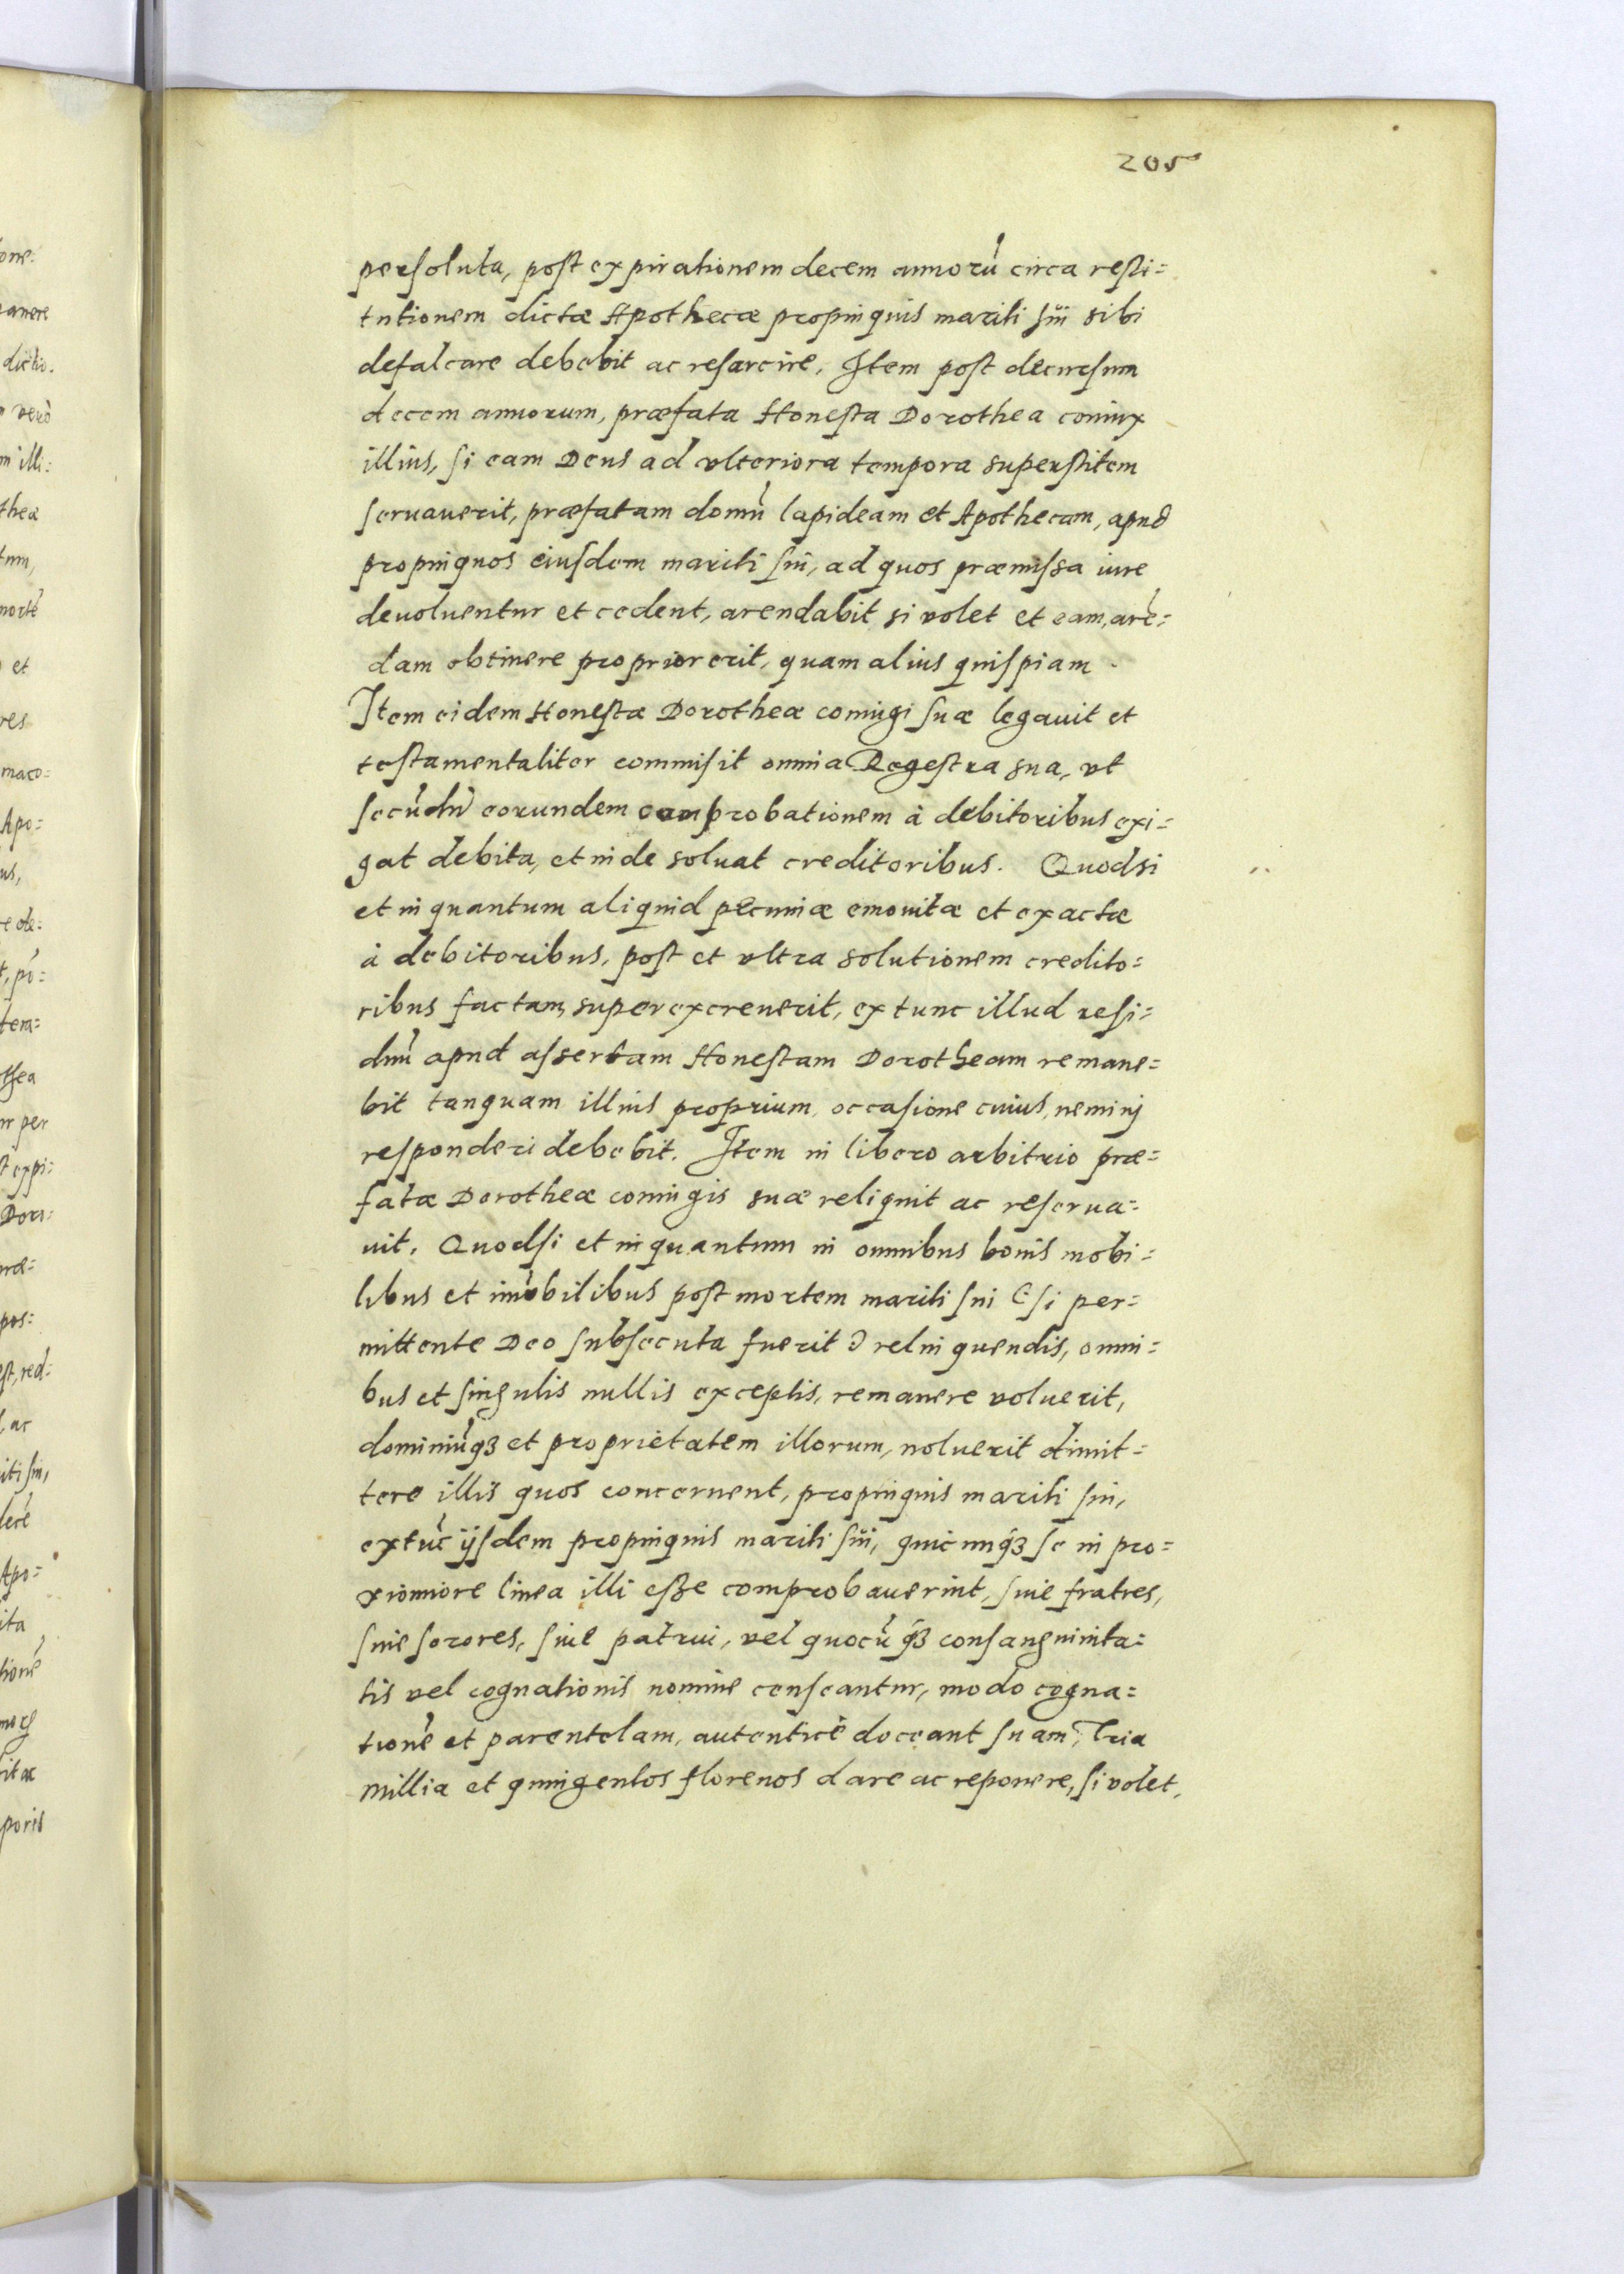 205
persoluta, post expirationem decem annorū circa resti=
tutionem dictæ Apothecæ propinquis mariti sui sibi
defalcare debebit ac resarcire. Item post decursum
decem annorum, præfata Honesta Dorothea coniux
illius, si eam Deus ad vlteriora tempora superstitem
seruauerit, præfatam domū lapideam et Apothecam, apud
propinquos eiusdem mariti sui, ad quos præmissa iure
deuoluentur et cedent, arendabit si volet et eam, arē=
dam obtinere proprior erit, quam alius quispiam.
Item eidem Honestæ Dorotheæ coniugi suæ legauit et
testamentaliter commisit omnia Regestra sua, vt
secūdū eorundem comprobationem à debitoribus exi=
gat debita, et inde soluat creditoribus. Quodsi
et inquantum aliquid pecuniæ emonitæ et exactæ
à debitoribus, post et vltra solutionem credito=
ribus factam, superexcreuerit, extunc illud resi=
duū apud assertam Honestam Dorotheam remane=
bit tanquam illius proprium, occasione cuius, neminj
responderi debebit. Item in libero arbitrio præ=
fatæ Dorotheæ coniugis suæ reliquit ac reserua=
uit. Quodsi et inquantum in omnibus bonis mobi=
libus et im̄obilibus post mortem mariti sui (si per=
mittente Deo subsecuta fuerit) relinquendis, omni=
bus et singulis nullis exceptis, remanere voluerit,
dominiūqꝫ et proprietatem illorum, noluerit dimit=
tere illis quos concernent, propinquis mariti sui,
extūc ijsdem propinquis mariti sui, quicunqꝫ se in pro=
ximiore linea illi esse comprobauerint, siue fratres,
siue sorores, siue patrui, vel quocūqꝫ consanguinita=
tis vel cognationis nomine censeantur, modo cogna=
tionē et parentelam, autenticè doceant suam, Tria
millia et quingentos florenos dare ac reponere, si volet,